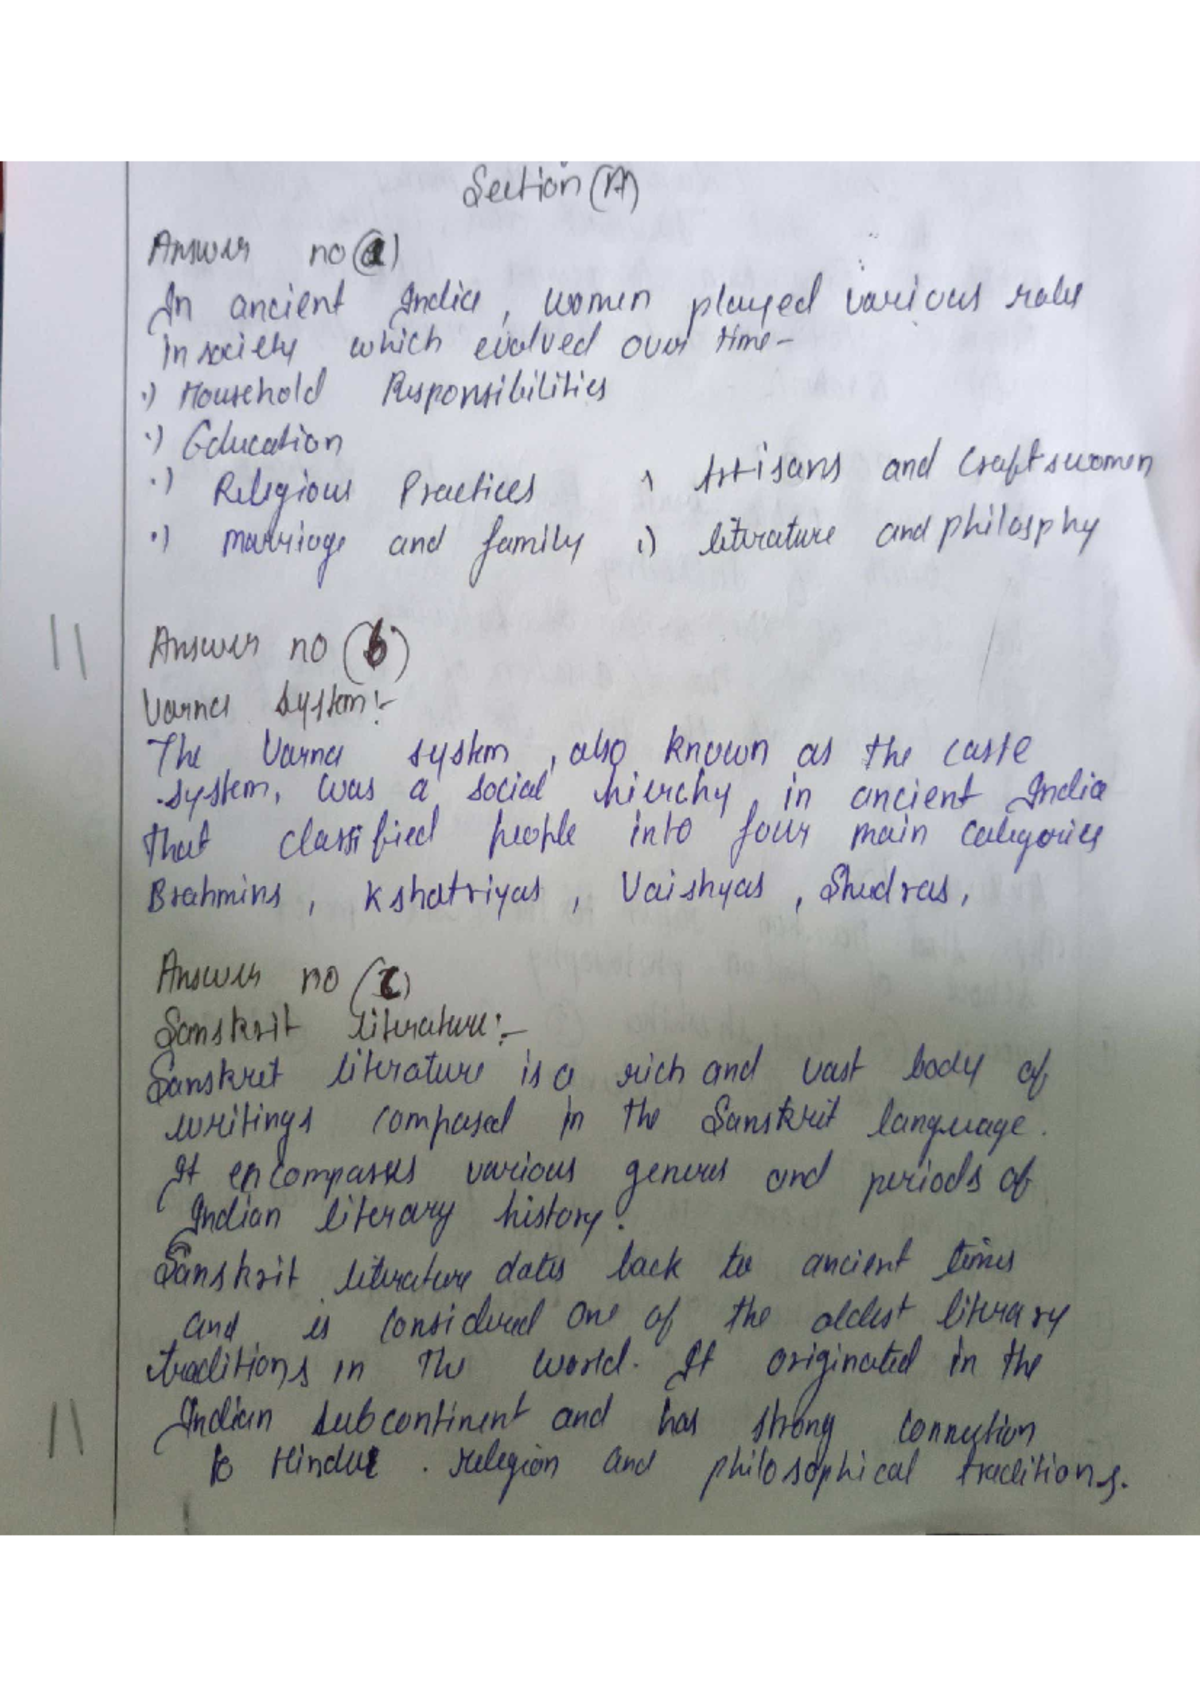 Section (A)
Answer no (a)
In ancient India, women played various roles
in society which evolved over time-
·) Household Responsibilities
·) Education
·) Religious Practices
·) Artisans and Craftswomen
·) Marriage and family
·) literature and philosphy
Answer no (b)
Varna System:-
The Varna system, also known as the caste
system, was a social hierchy in ancient India
that classified people into four main categories
Brahmins, Kshatriyas, Vaishyas, Shudras,
Answer no (c)
Sanskrit literature:-
Sanskret literature is a rich and vast body of
writings composed in the Sanskrit language.
It encompasses various genres and periods of
Indian literary history.
Sanskrit literature dates back to ancient times
and is considered one of the oldest literary
traditions in the world. It originated in the
Indian subcontinent and has strong connection
to Hindu. religion and philosophical traditions.